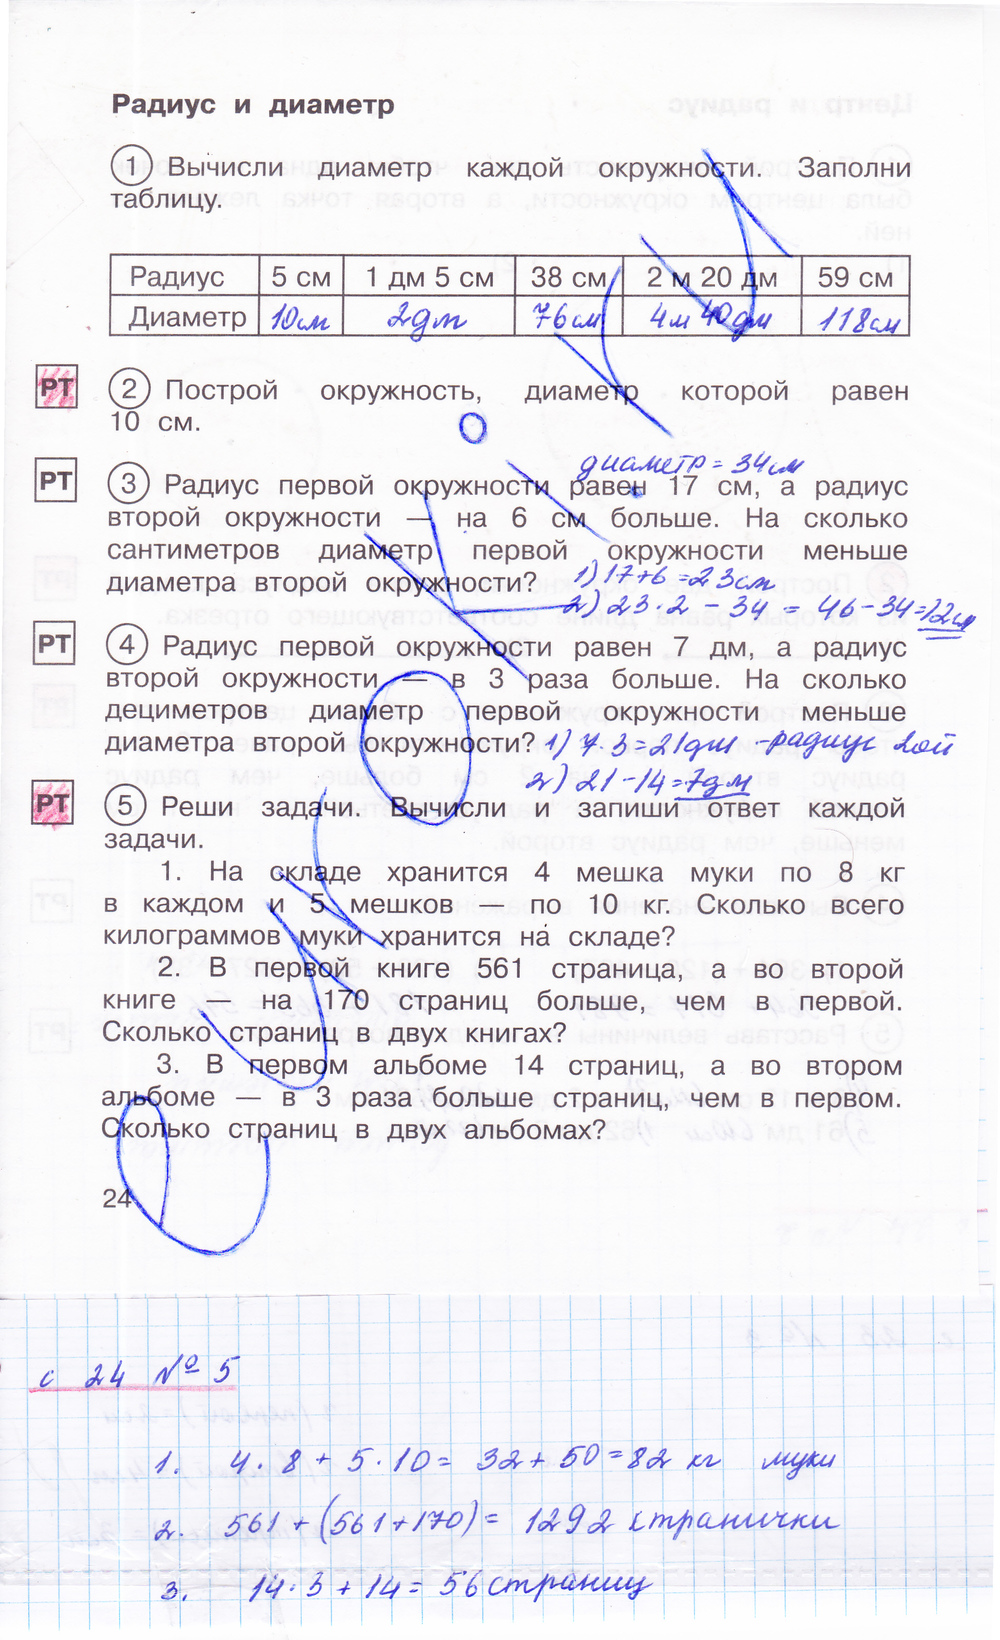 Радиус и диаметр
1 Вычисли диаметр каждой окружности. Заполни
таблицу.
Радиус 5 см 1 дм 5 см 38 см 2 м 20 дм 59 см
Диаметр 10см 2дм 76см 4м 40дм 118см
РТ 2 Построй окружность, диаметр которой равен
10 см.
диаметр = 34см
РТ 3 Радиус первой окружности равен 17 см, а радиус
второй окружности — на 6 см больше. На сколько
сантиметров диаметр первой окружности меньше
диаметра второй окружности? 1) 17+6 = 23см
2) 23·2 - 34 = 46-34=12см
РТ 4 Радиус первой окружности равен 7 дм, а радиус
второй окружности — в 3 раза больше. На сколько
дециметров диаметр первой окружности меньше
диаметра второй окружности? 1) 7·3=21дм - радиус 2ой
2) 21-14=7дм
РТ 5 Реши задачи. Вычисли и запиши ответ каждой
задачи.
1. На складе хранится 4 мешка муки по 8 кг
в каждом и 5 мешков — по 10 кг. Сколько всего
килограммов муки хранится на складе?
2. В первой книге 561 страница, а во второй
книге — на 170 страниц больше, чем в первой.
Сколько страниц в двух книгах?
3. В первом альбоме 14 страниц, а во втором
альбоме — в 3 раза больше страниц, чем в первом.
Сколько страниц в двух альбомах?
24
с 24 № 5
1. 4·8+5·10= 32+50=82 кг муки
2. 561+(561+170)= 1292 странички
3. 14·3+14= 56страниц